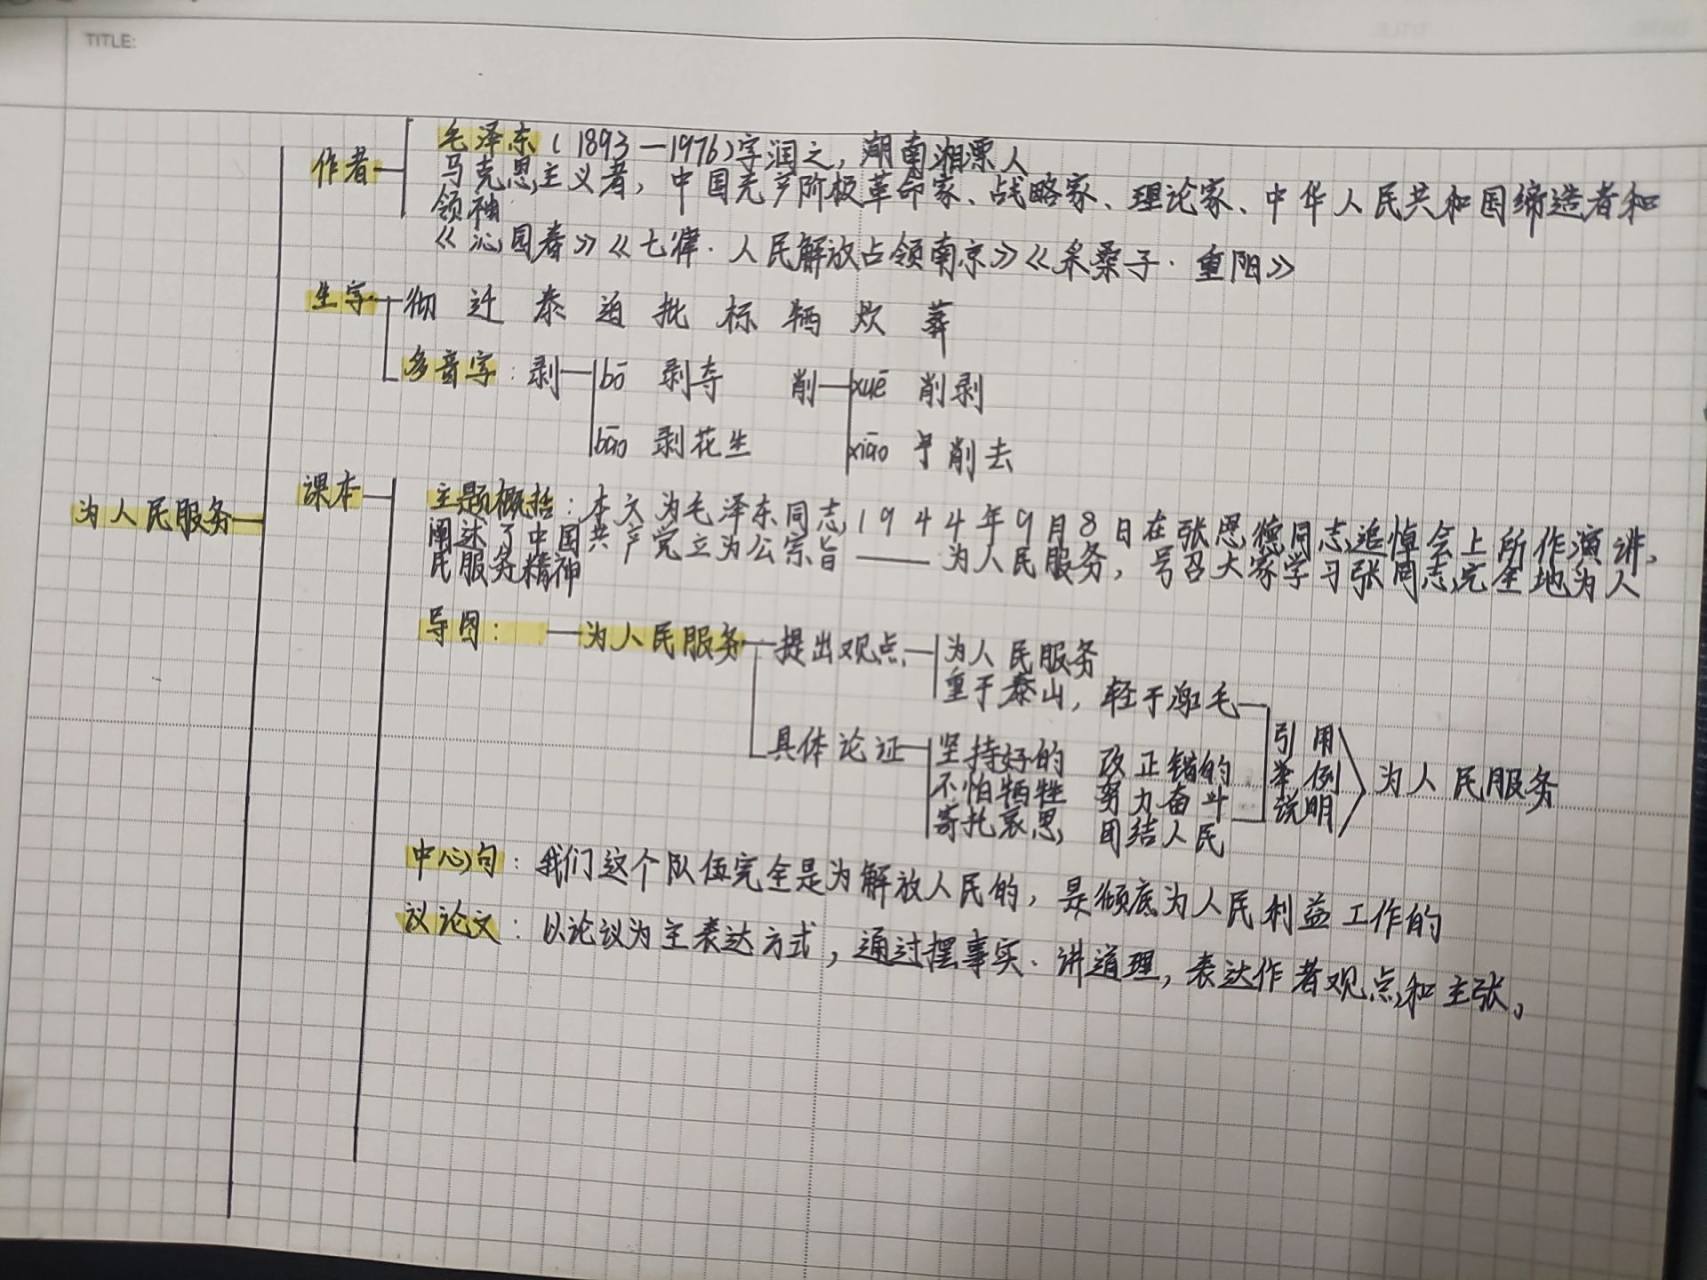 TITLE:
作者 毛泽东(1893—1976)字润之,湖南湘潭人
马克思主义者,中国无产阶级革命家、战略家、理论家、中华人民共和国缔造者和
领袖
《沁园春》《七律·人民解放占领南京》《采桑子·重阳》
生字 彻 迁 泰 迫 批 标 牺 炊 葬
多音字:剥 bō 剥夺 削 xuē 削剥
bāo 剥花生 xiāo 削去
为人民服务
课本 主题概括:本文为毛泽东同志1944年9月8日在张思德同志追悼会上所作演讲,
阐述了中国共产党立为公宗旨——为人民服务,号召大家学习张同志完全地为人
民服务精神
导图:—为人民服务 提出观点 为人民服务
重于泰山,轻于鸿毛
具体论证 坚持好的 改正错的
不怕牺牲 努力奋斗
寄托哀思 团结人民
引用
举例
说明
为人民服务
中心句:我们这个队伍完全是为解放人民的,是彻底为人民利益工作的
议论文:以论议为主表达方式,通过摆事实、讲道理,表达作者观点和主张。